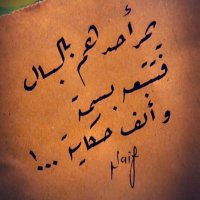 يمر أحدهم بالبال
فتتبعه بسمة
و ألف حكاية ...!
Naif